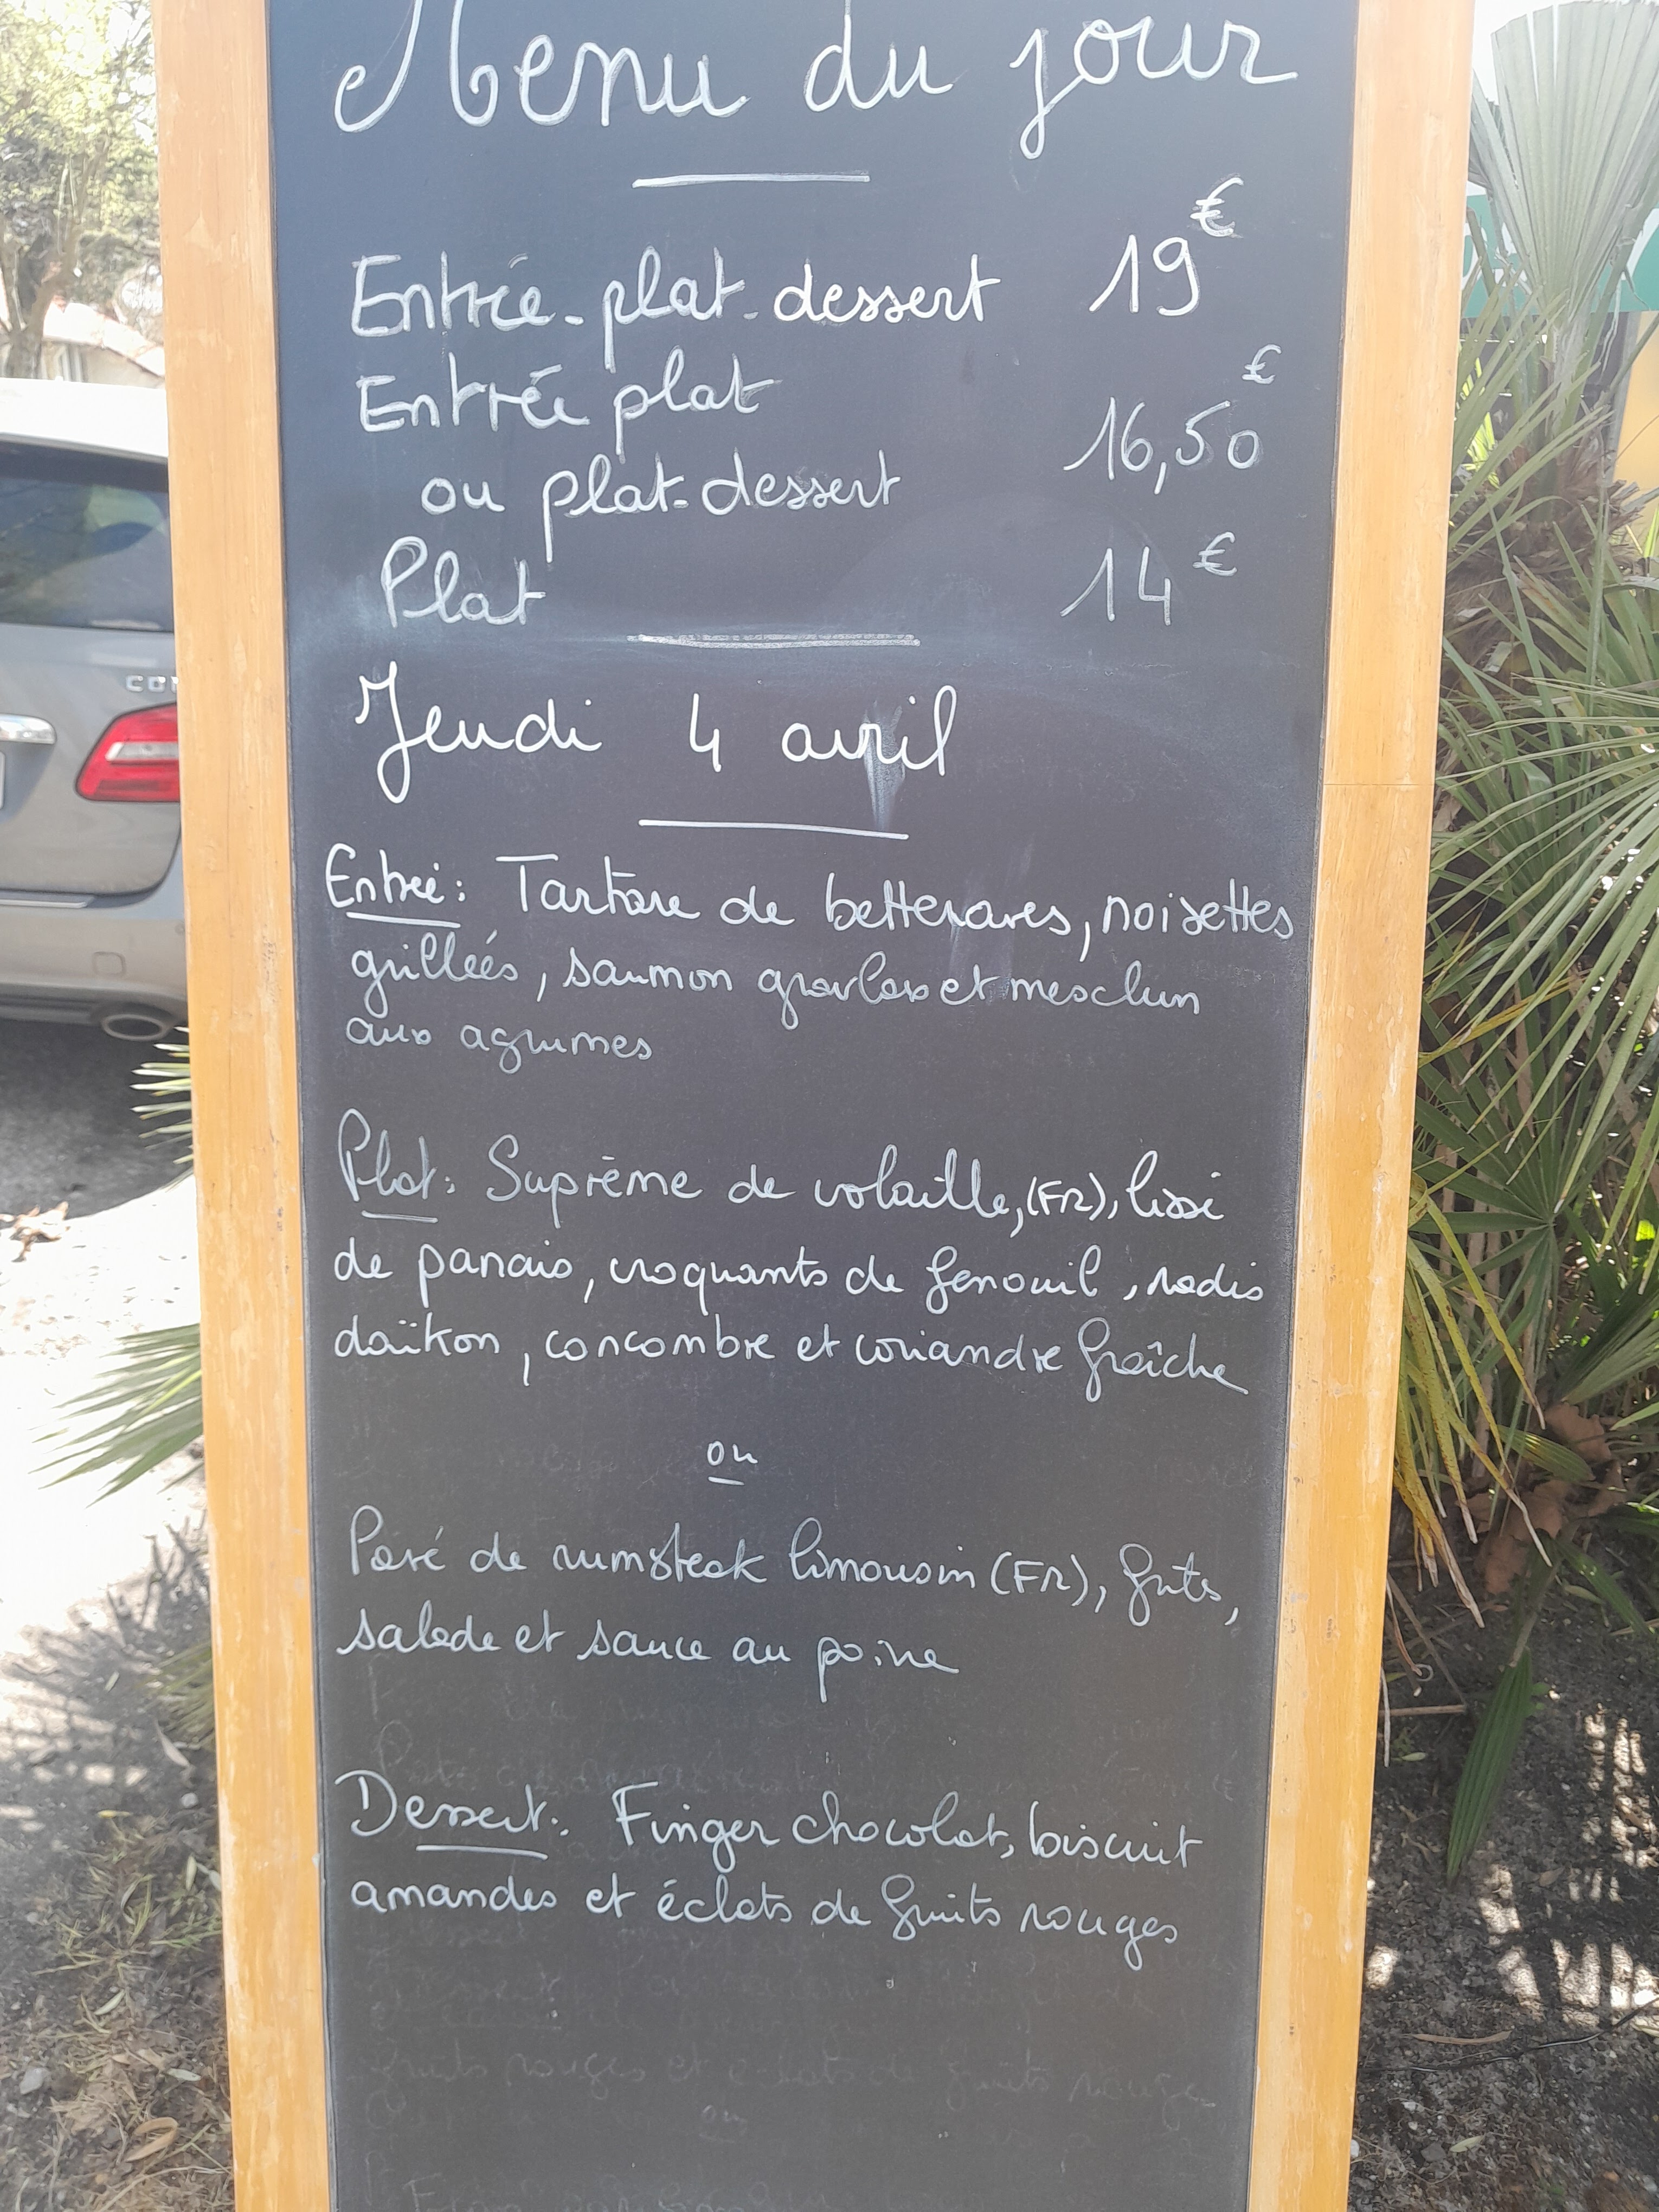 Menu du jour
Entrée-plat-dessert 19€
Entrée plat
ou plat-dessert 16,50€
Plat 14€
Jeudi 4 avril
Entrée: Tartare de betteraves, noisettes
grillées, saumon gravlax et mesclun
aux agrumes
Plat: Suprême de volaille, (FR), lissé
de panais, croquants de fenouil, radis
daïkon, concombre et coriandre fraîche
ou
Pavé de rumsteak limousin (FR), frites,
salade et sauce au poivre
Dessert: Finger chocolat, biscuit
amandes et éclats de fruits rouges